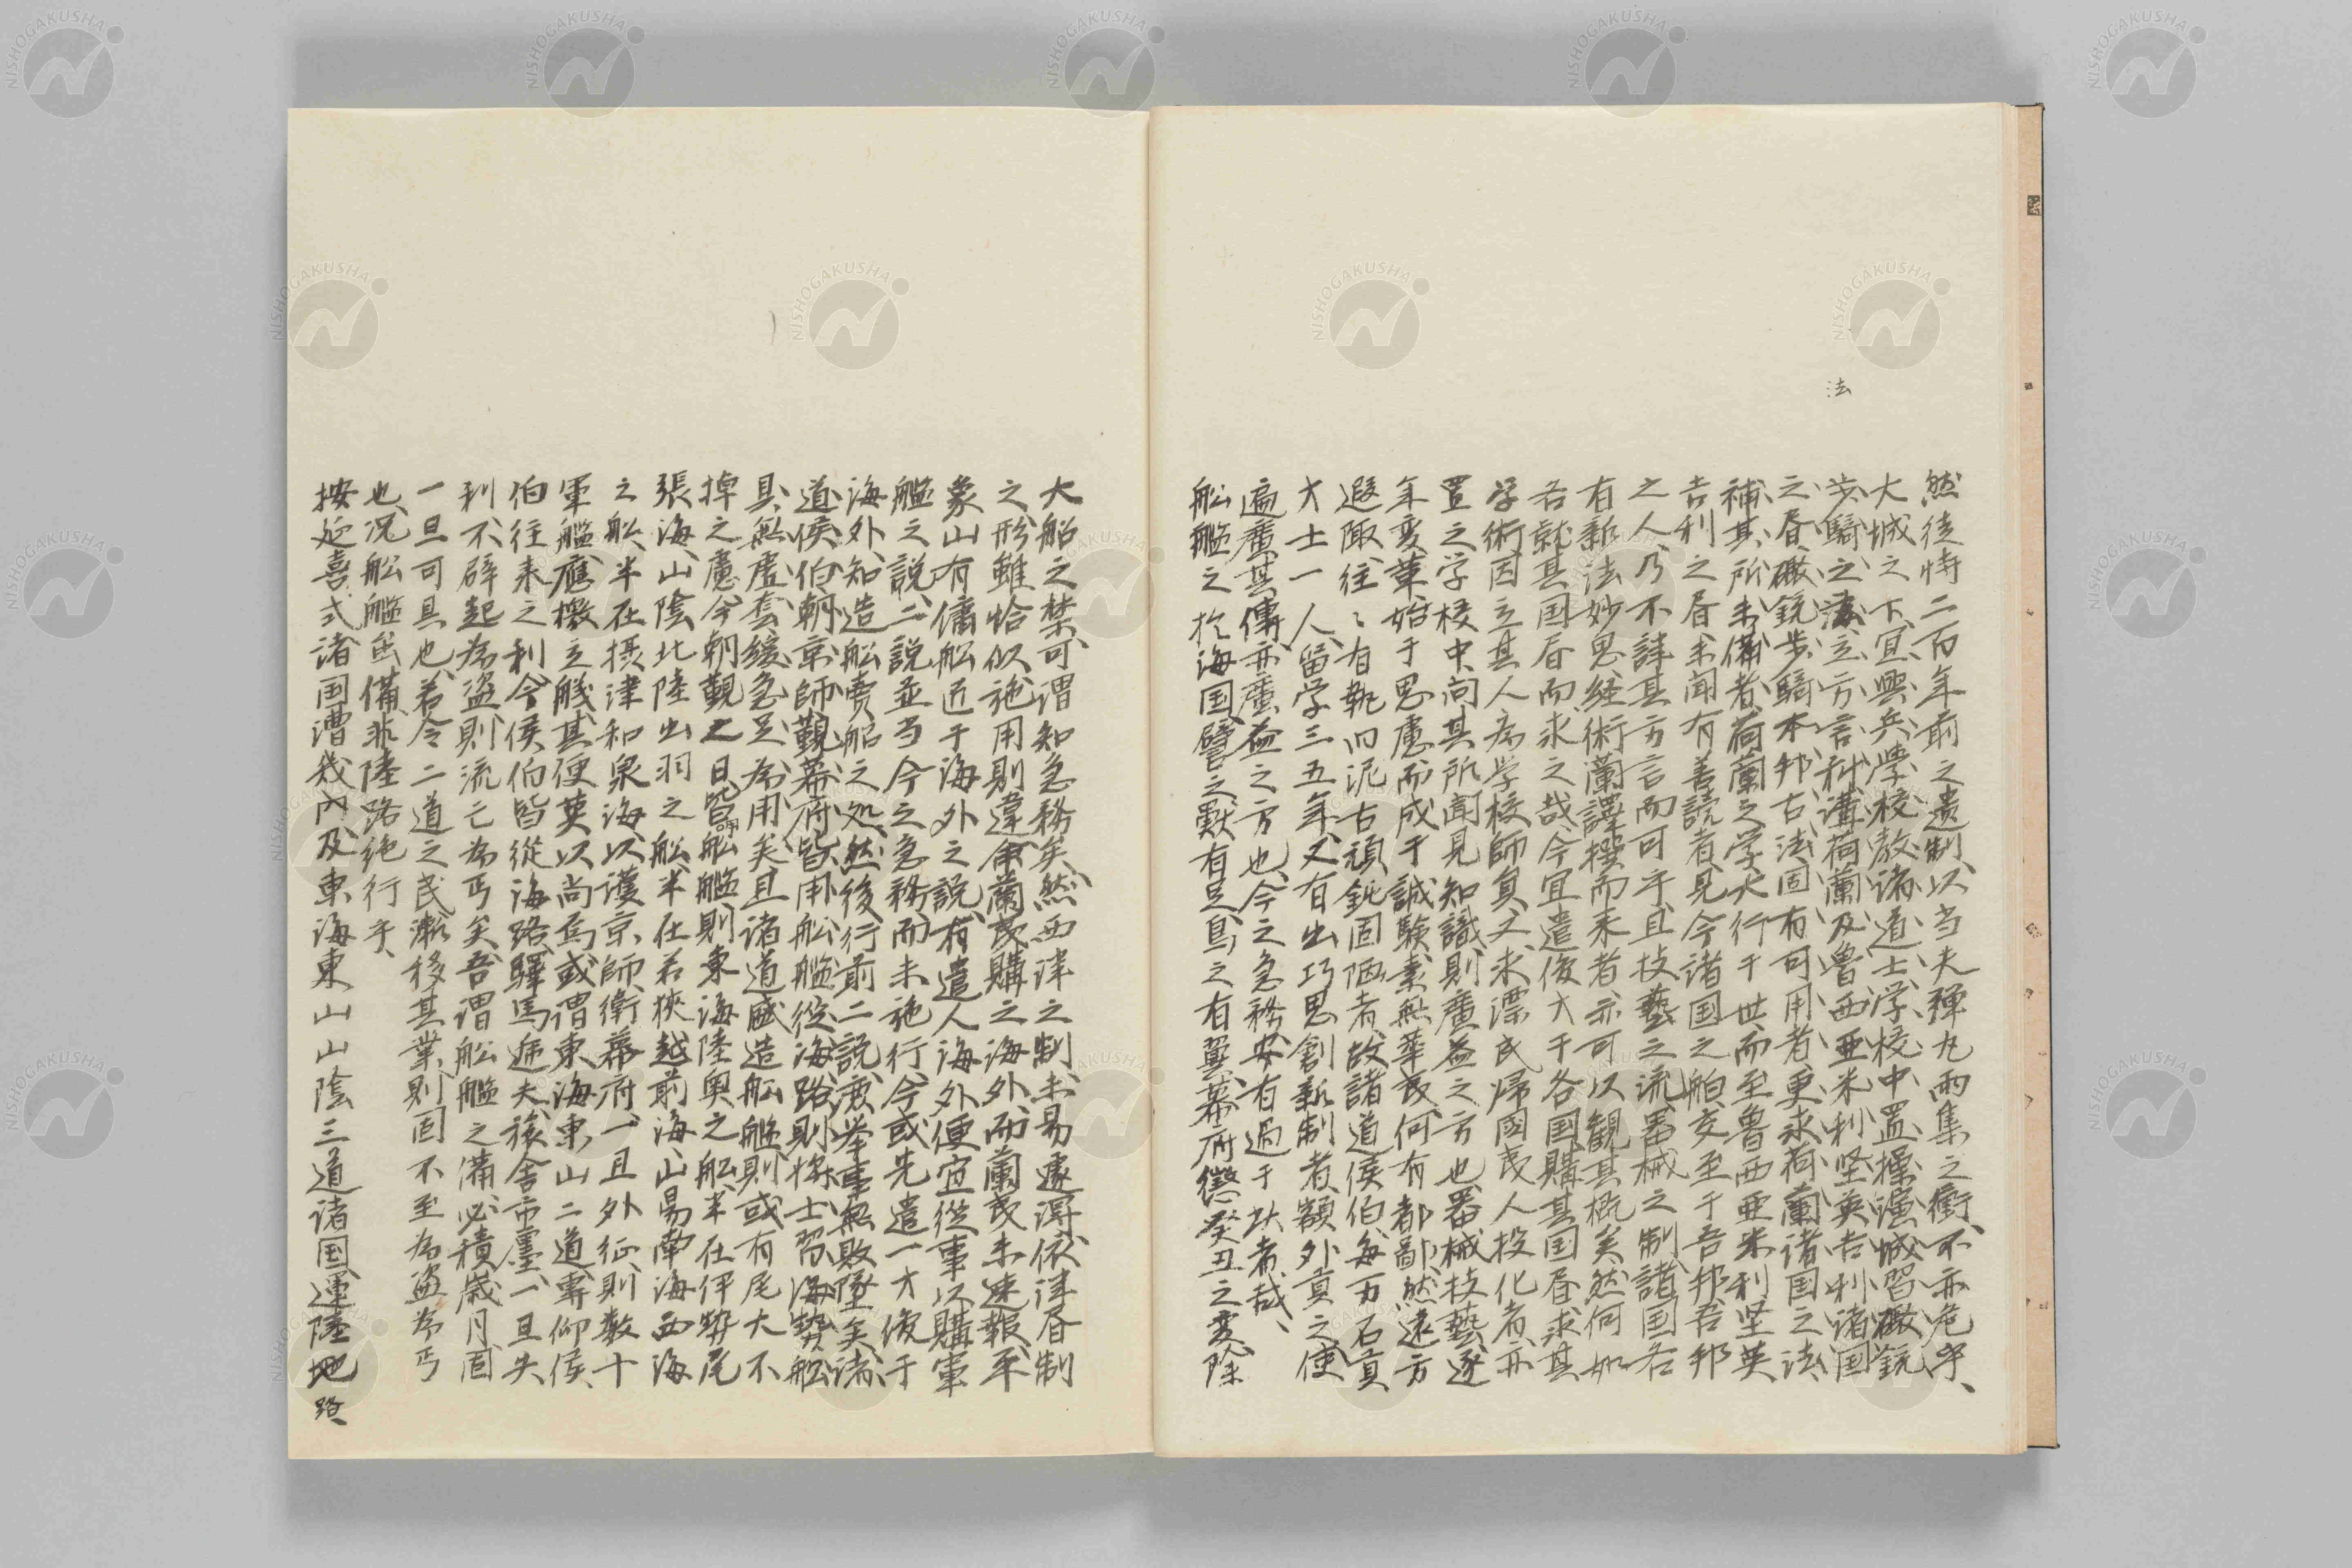 法
然徒恃二百年前之遺制、以当夫弾丸雨集之衝、不亦危乎、
大城之下、宜興兵学校、教諸道士、学校中置操演城、習礮銃
歩騎之法、立方言科、講荷蘭及魯西亜米利堅英吉利諸国
之書、礮銃歩騎、本邦古法固有可用者、更求荷蘭諸国之法、
補其所未備者、荷蘭之学大行于世、而至魯西亜米利堅英
吉利之書、未聞有善読者、見今諸国之舶交至于吾邦、吾邦
之人、乃不詳其方言而可乎、且技藝之流、器械之制、諸国各
有新法妙思、経術蘭譯撰而来者、亦可以観其概矣、然何如
各就其国書而求之哉、今宜遣俊才于各国、購其国書、求其
学術、因立其人為学校師員、又求漂民帰国、夷人投化者、亦
置之学校中、问其所聞見知識、則廣益之方也、器械技藝、逐
年変革、始于思慮、而成于誠験、素無華夷、何有都鄙、然遠方
遐陬、往々有執旧泥古頑鈍固陋者、故諸道侯伯、毎万石貢
才士一人、留学三五年、又有出巧思創新制者、額外貢之、使
遍廣其傳、亦廣益之方也、今之急務、安有過于玆者哉、
舩艦之於海国、譬之獣有足、鳥之有翼、幕府懲癸丑之変、除
大船之禁、可謂知急務矣、然西洋之制、未易遽得、依洋書制
之、形雖恰似、施用則違、命蘭夷購之海外、而蘭夷未速報、平
象山有傭舩近于海外之説、有遣人海外、便宜従事、以購軍
艦之説、二説並当今之急務、而未施行、今或先遣一才俊于
海外、知造舩賣舩之処、然後行前二説、庶挙事無敗墜矣、諸
道侯伯、朝京師、覲幕府、皆用舩艦、従海路、則将士習海勢、舩
具無虚套、緩急足為用矣、且諸道盛造舩艦、則或有尾大不
掉之慮、今朝覲之日、皆用舩艦、則東海陸奥之舩、半在伊勢尾
張海、山陰北陸出羽之舩、半在若狭越前海、山陽南海西海
之舩、半在摂津和泉海、以護京師、衛幕府、一且外征、則数十
軍艦、應檄立艤、其便莫以尚焉、或謂東海東山二道、専仰侯
伯往来之利、今侯伯皆従海路、驛馬逓夫、旅舎市廛、一旦失
利、不辟起為盗、則流亡為丐矣、吾謂舩艦之備、必積歳月、固
一旦可具也、若令二道之民、漸移其業、則固不至為盗為丐
也、况舩艦虽備、非陸路絶行乎、
按延喜式、諸国漕、畿内及東海東山山陰三道諸国運陸地路、